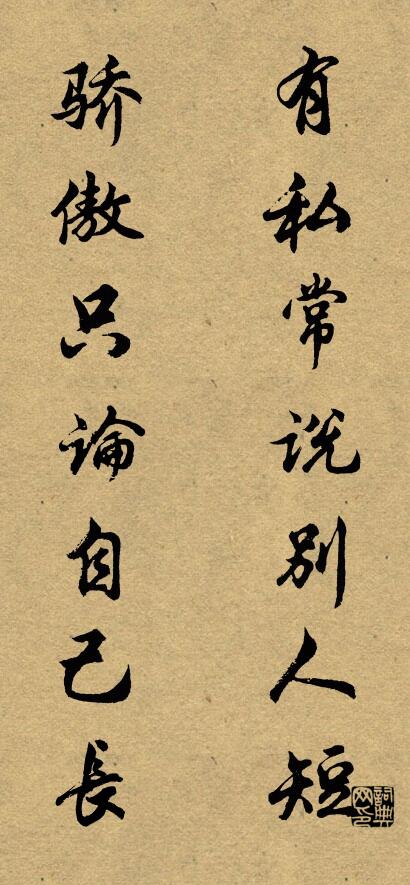 有私常说别人短
骄傲只論自己長
詞典网印